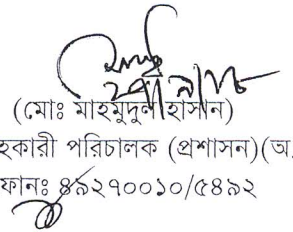 (মোঃ মাহমুদুল হাসান)
হকারী পরিচালক (প্রশাসন)(অ.
ফোনঃ ৪৯২৭০০১০/৫৪৯২